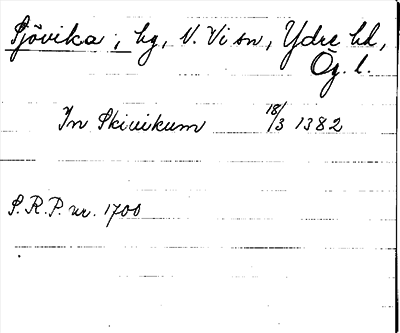 Sjövika, hg, V. Vi sn, Ydre hd,
Ög. l.
In Skiuikum 18/3 1382
S.R.P. nr. 1700